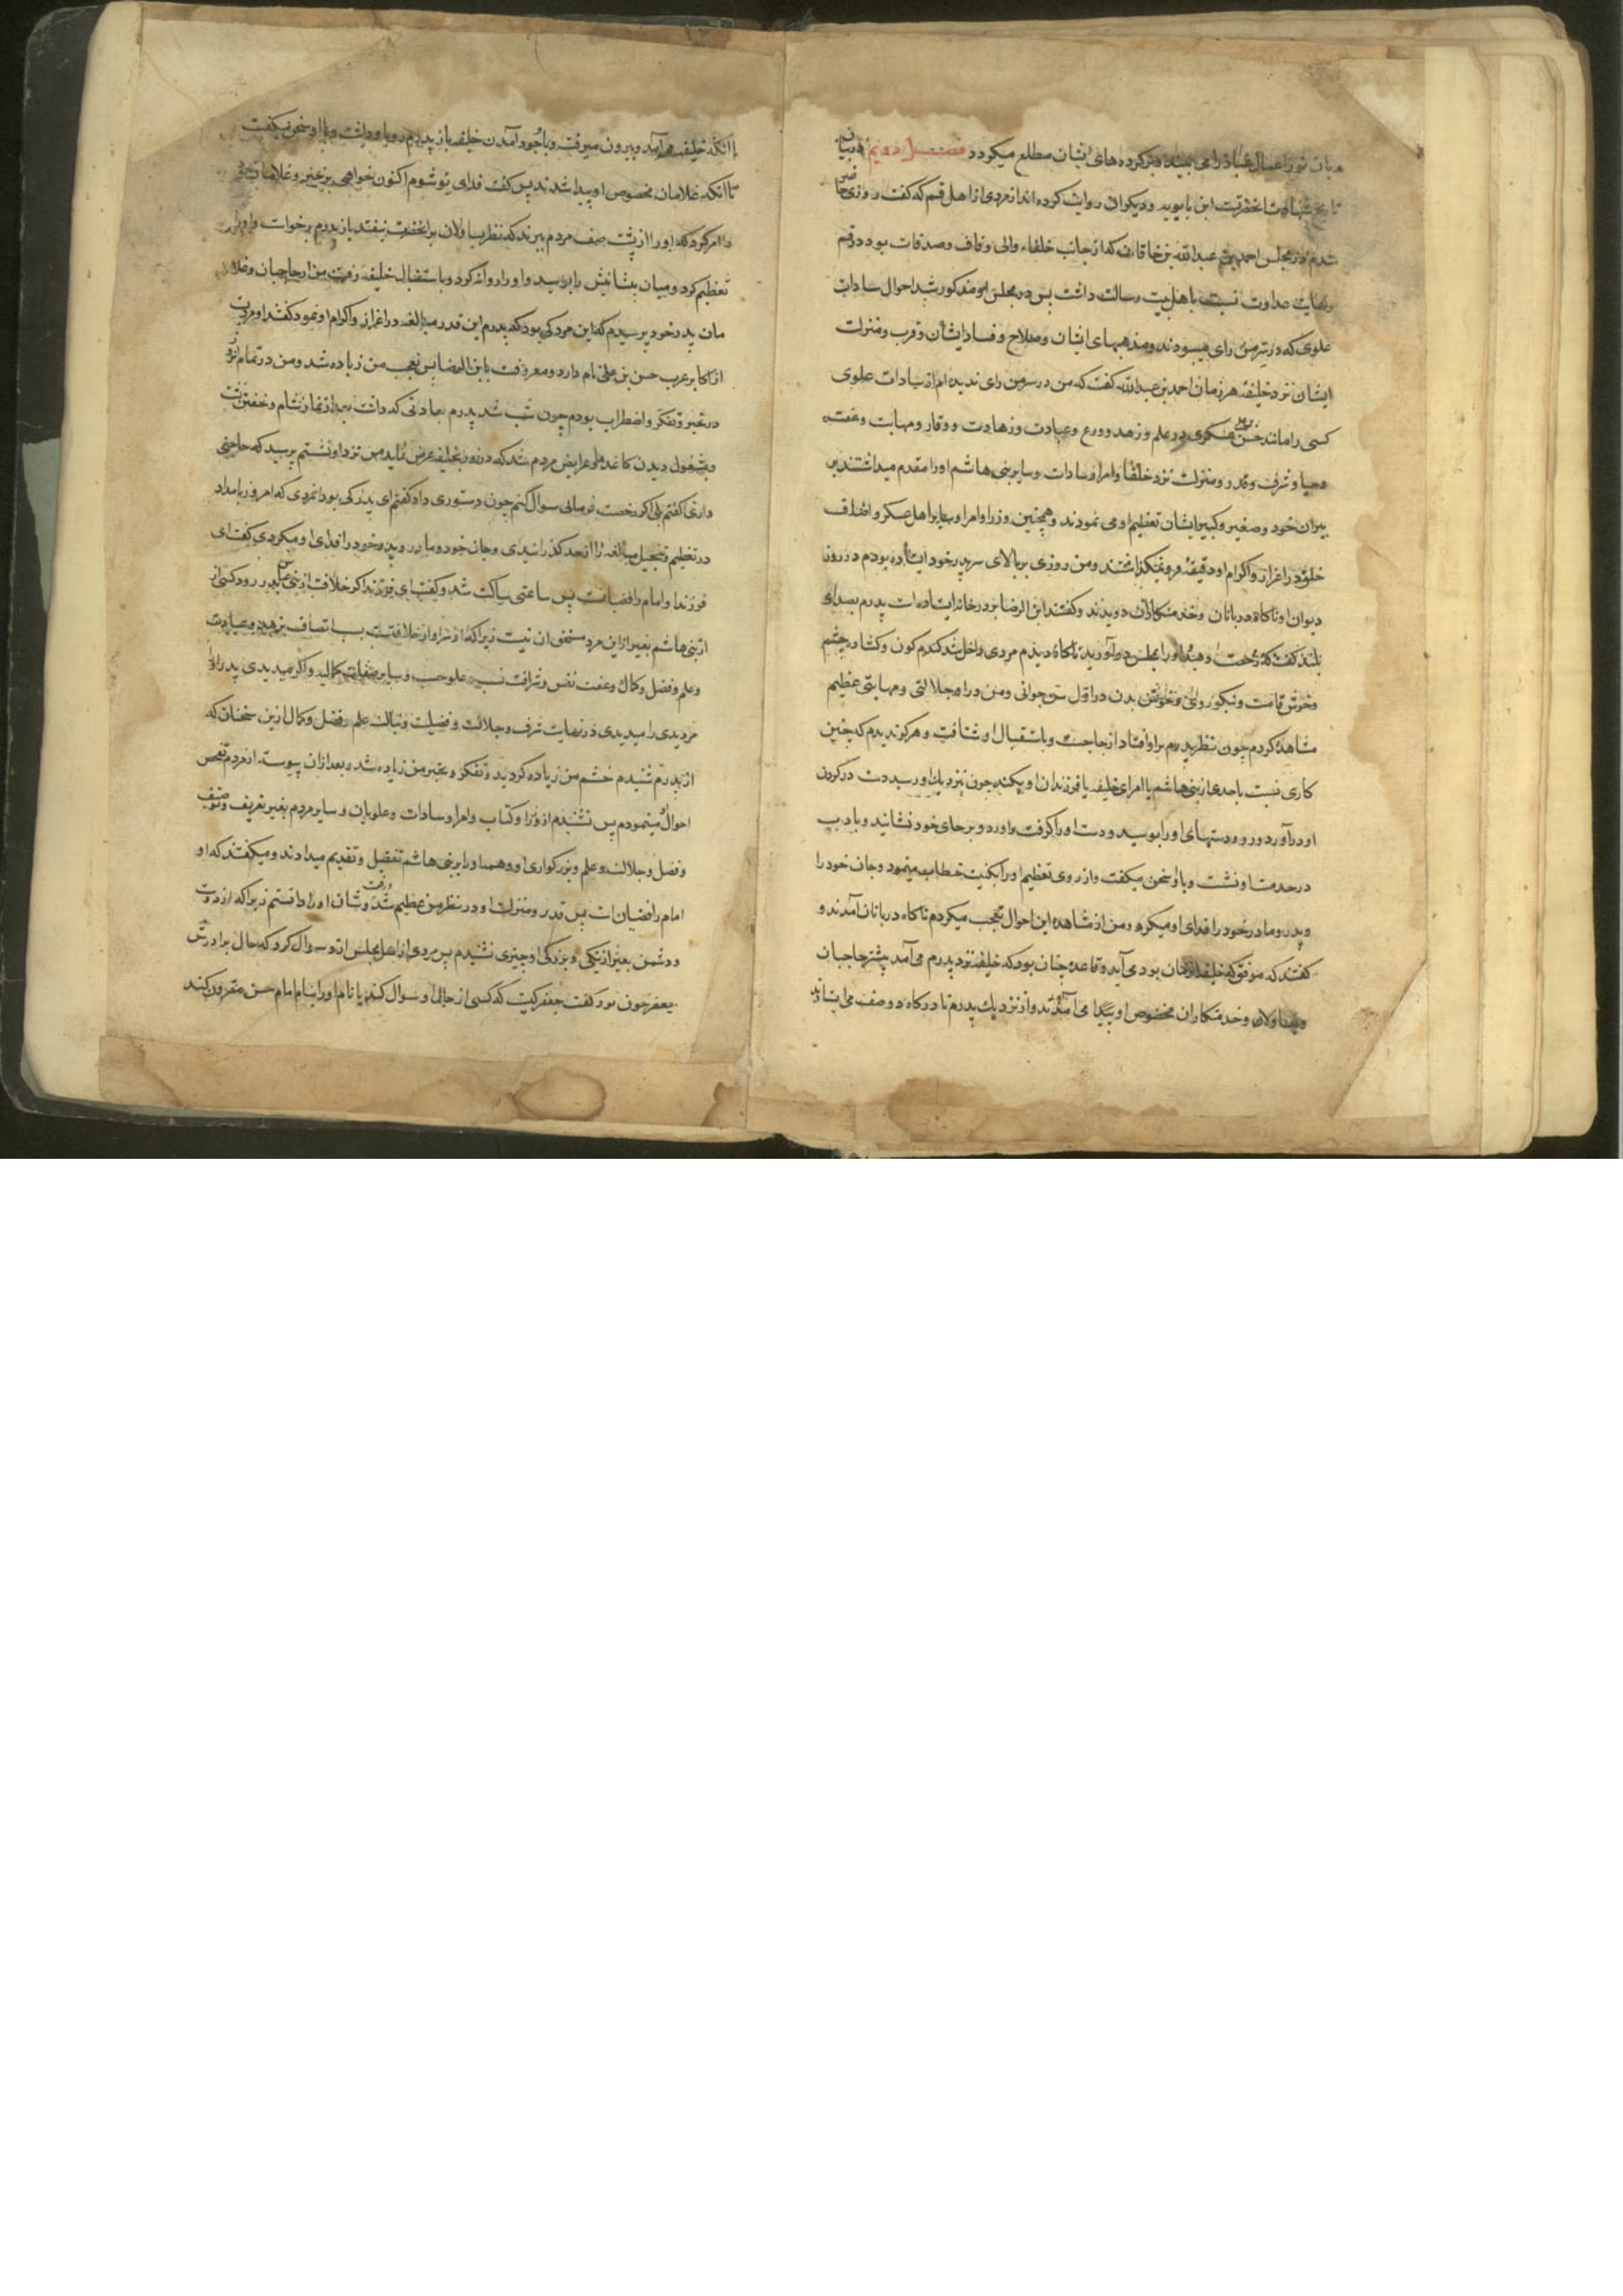 میان نور اعمال عباد را می بیند و بر کرده های ایشان مطلع میکردد فصل دویم در بیان
تاریخ شهادت انحضرتست ابن بابویه و دیکران روایت کرده اند از مردی از اهل قم که کفت روزی حاضر
شدم در مجلس احمد بن عبدالله بن خاقان که از جانب خلفاء والی وقاف و صدقات بود در قم
و نهایت عداوت نسبت باهل بیت رسالت داشت پس در مجلس او مذکور شد احوال سادات
علوی که در سرمن رای میبودند و مذهبهای ایشان و صلاح و فساد ایشان و قرب و منزلت
ایشان نزد خلیفه هر زمان احمد بن عبدالله کفت که من در سرمن رای ندیده ام از سادات علوی
کسی را مانند حسن عسکری در علم و زهد و ورع و عبادت و زهادت و وقار و مهابت و عفت
و حیا و شرف و قدر و منزلت نزد خلفا و امرا و سادات و سایر بنی هاشم او را مقدم میداشتند بر
پیران خود و صغیر و کبیر ایشان تعظیم او می نمودند و همچنین وزرا و امرا و سایر اهل عسکر و اصناف
خلق در اعزاز و اکرام او دقیقه فرو نمیکذاشتند و من روزی بر بالای سر پدر خود ایستاده بودم در روز
دیوان او ناکاه دربانان و خدمتکاران دویدند و کفتند ابن الرضا بر در خانه ایستاده است پدرم بصدای
بلند کفت که رخصت دهید او را بمجلس در آورید ناکاه دیدم مردی داخل شد کندم کون و کشاده چشم
و خوش قامت و نیکو روی و خوش بدن در اول سن جوانی و من در او جلالتی و مهابتی عظیم
مشاهده کردم چون نظر پدرم بر او افتاد از جا جست و باستقبال او شتافت و هرکز ندیدم که چنین
کاری نسبت باحدی از بنی هاشم یا امرای خلیفه یا فرزندان او بکند چون نزدیك او رسید دست در کردن
او در آورد و رو و دستهای او را بوسید و دست او را کرفت و آورد و بر جای خود نشانید و بادب
در خدمت او نشست و با او سخن میکفت و از روی تعظیم او را بکنیت خطاب مینمود و جان خود را
و پدر و مادر خود را فدای او میکرد و من از مشاهده این احوال تعجب میکردم ناکاه دربانان آمدند و
کفتند که موفق که خلیفه آنزمان بود می آید و قاعده چنان بود که خلیفه نزد پدرم می آمد پیشتر حاجبان
و یساولان و خدمتکاران مخصوص او پیدا می آمدند و از نزدیك پدرم تا درکاه دو صف می ایستادند
تا انکه خلیفه می آمد و بیرون میرفت و با وجود آمدن خلیفه باز پدرم رو باو داشت و با او سخن میکفت
تا انکه غلامان مخصوص او پیدا شدند پس کفت فدای تو شوم اکنون خواهی برخیز و غلامان خود
را امر کرد که او را از پشت صف مردم ببرند که نظر یساولان بر انحضرت نیفتد باز پدرم برخواست و او را
تعظیم کرد و میان پیشانیش را بوسید و او را روانه کرد و باستقبال خلیفه رفت من از حاجبان و غلا
مان پدر خود پرسیدم که این مرد کی بود که پدرم این قدر مبالغه در اعزاز و اکرام او نمود کفتند او مردیست
از اکابر عرب حسن بن علی نام دارد و معروفست بابن الرضا پس تعجب من زیاده شد و من در تمام آنروز
در تحیر و تفکر و اضطراب بودم چون شب شد پدرم بعادتی که داشت بعد از نماز شام و خفتن نشست
و مشغول دیدن کاغذها و عرایض مردم شد که در روز بخلیفه عرض نماید من نزد او نشستم پرسید که حاجتی
داری کفتم بلی اکر رخصت فرمائی سوال کنم چون دستوری داد کفتم ای پدر کی بود انمردی که امروز بامداد
در تعظیم و تبجیل مبالغه را از حد کذرانیدی و جان خود و مادر و پدر خود را فدای او میکردی کفت ای
فرزند او امام رافضیانست پس ساعتی ساکت شد و کفت ای فرزند اکر خلافت از بنی عباس بدر رود کسی از
از بنی هاشم بغیر از این مرد مستحق ان نیست زیرا که او سزاوار خلافتست بسبب اتصاف بزهد و عبادت
و علم و فضل و کمال و عفت نفس و شرافت نسب و علو حسب و سایر صفات کمالیه و اکر میدیدی پدر او را
مردی را میدیدی در نهایت شرف و جلالت و فضیلت و نبالت علم و فضل و کمال ازین سخنان که
از پدرم شنیدم خشم من زیاده کردید و تفکر و تحیر من زیاده شد و بعد ازان پیوسته از مردم تفحص
احوال او مینمودم پس نشنیدم از وزرا و کتاب و امرا و سادات و علویان و سایر مردم بغیر تعریف و توصیف
و فضل و جلالت و علم و بزرکواری او و همه او را بر بنی هاشم تفضیل و تقدیم میدادند و میکفتند که او
امام رافضیان است پس قدر و منزلت او در نظر من عظیم شد و رفعت و شان او را دانستم زیرا که از دوست
و دشمن بغیر از نیکی و بزرکی او چیزی نشنیدم پس مردی از اهل مجلس از او سوال کرد که حال برادرش
جعفر چون بود کفت جعفر کیست که کسی از حال او سوال کند یا نام او را بنام امام حسن مقرون کند